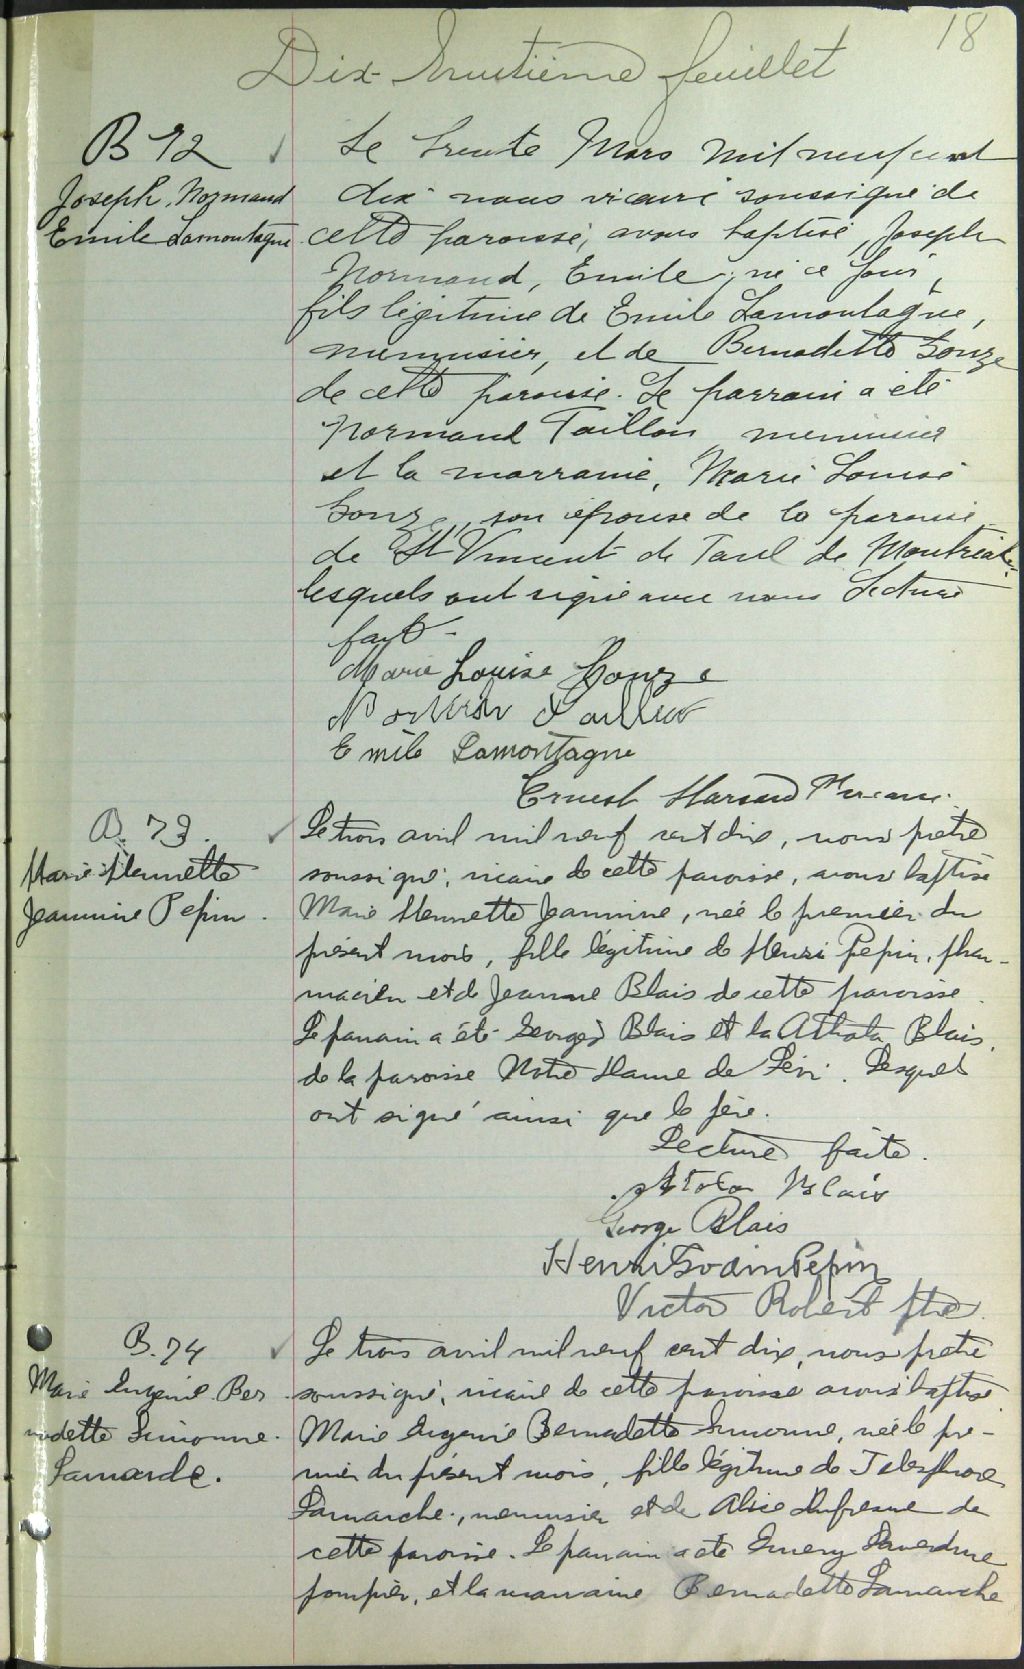 18
Dix-huitième feuillet
B 72
Joseph, Normand
Emile Lamontagne
Le trente Mars mil neuf cent
dix nous vicaire soussigné de
cette paroisse, avons baptisé, Joseph
Normand, Emile, né ce jour,
fils légitime de Emile Lamontagne,
menuisier, et de Bernadette Gonze
de cette paroisse. Le parrain a été
Normand Taillon menuisier
et la marraine, Marie Louise
Gonze, son épouse de la paroisse
de St Vincent de Paul de Montréal,
lesquels ont signé avec nous Lecture
faite.
Marie Louise Gonze
Emile Lamontagne
Ernest
B. 73.
Marie Hennette
Jeannine Pepin.
Le trois avril mil neuf cent dix, nous prêtre
soussigné, vicaire de cette paroisse, avons baptisé
Marie Hennette Jeannine, née le premier du
présent mois, fille légitime de Henri Pepin, phar-
macien et de Jeanne Blais de cette paroisse.
Le parrain a été Georges Blais et la Blais,
de la paroisse Notre Dame de Lévi. Lesquels
ont signé ainsi que le père.
Lecture faite.
Blais
George Blais
Henri Godin Pepin
Victor Robert ptre.
B. 74
Marie Eugénie Ber
nadette Simonne
Lamarche.
Le trois avril mil neuf cent dix, nous prêtre
soussigné, vicaire de cette paroisse avons baptisé
Marie Eugénie Bernadette Simonne, née le pre-
mier du présent mois, fille légitime de Telesphore
Lamarche, menuisier et de Alice Dufresne de
cette paroisse. Le parrain a été Emery
pompier, et la marraine Bernadette Lamarche